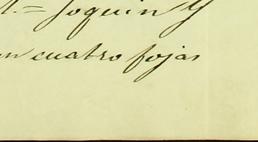 Joquin Y
en cuatro fojas